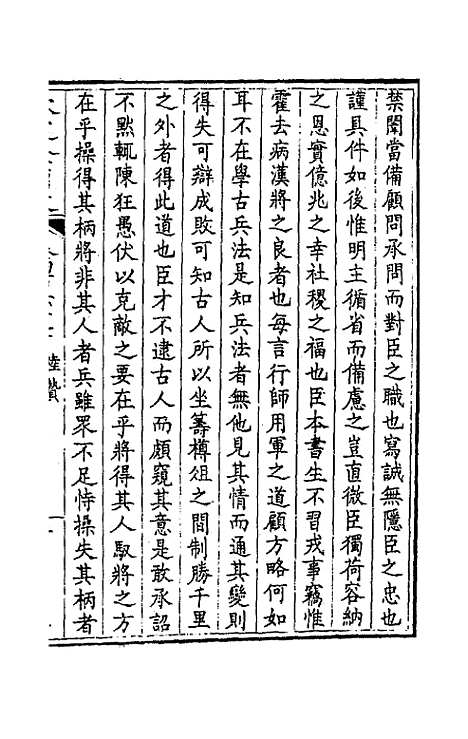 禁闈當備顧問承問而對臣之職也寫誠無隱臣之忠也
謹具件如後惟明主循省而備慮之豈直微臣獨荷容納
之恩實億兆之幸社稷之福也臣本書生不習戎事竊惟
霍去病漢將之良者也每言行師用軍之道顧方略何如
耳不在學古兵法是知兵法者無他見其情而通其變則
得失可辯成敗可知古人所以坐籌樽俎之間制勝千里
之外者得此道也臣才不逮古人而頗窺其意是敢承詔
不黙輒陳狂愚伏以克敵之要在乎將得其人馭將之方
在乎操得其柄將非其人者兵雖眾不足恃操失其柄者
陸贄